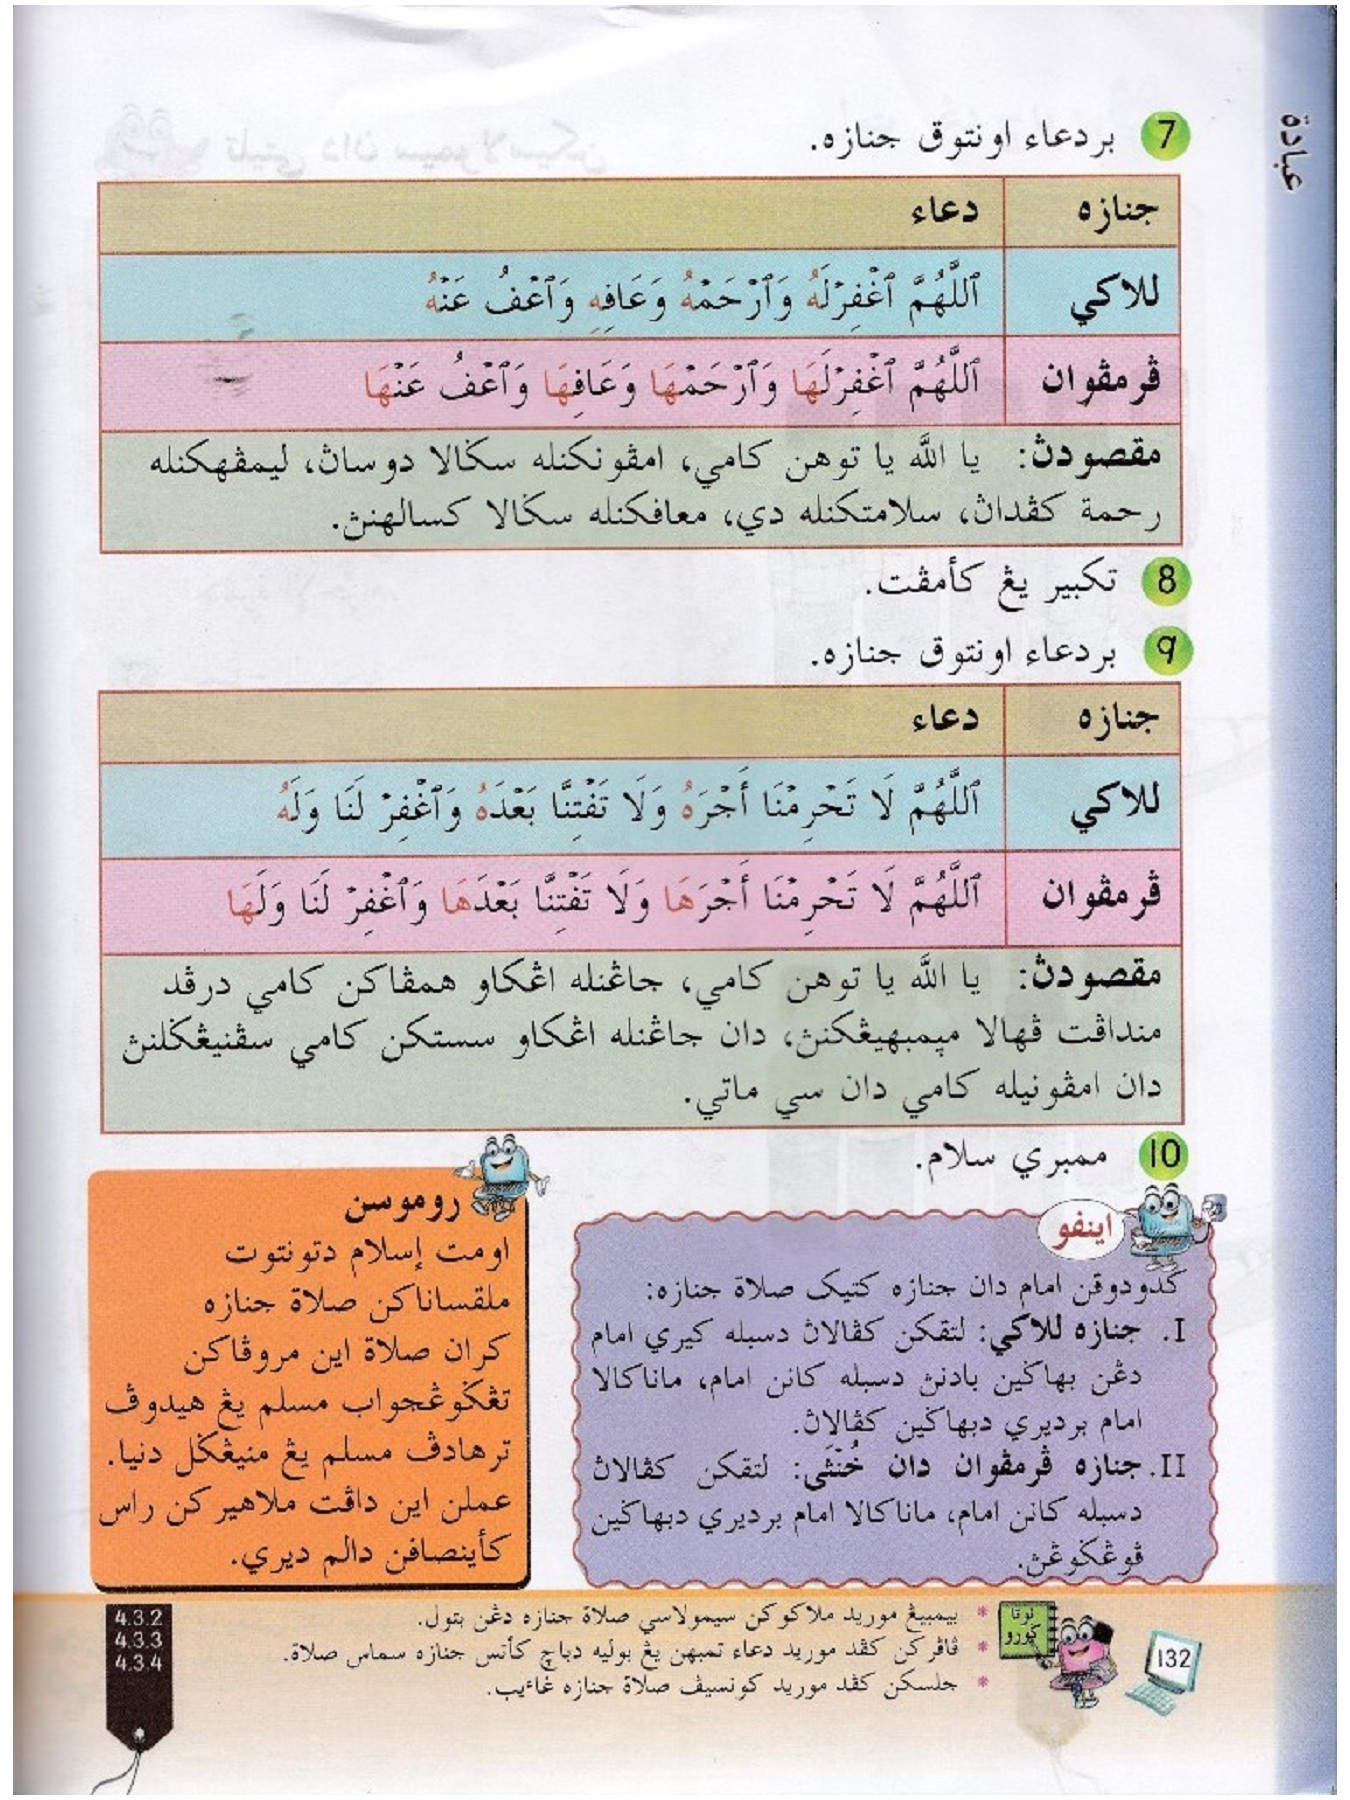 عبادة
7 بردعاء اونتوق جنازه.
جنازه دعاء
للاکي ٱللَّهُمَّ ٱغْفِرْلَهُ وَٱرْحَمْهُ وَعَافِهِ وَٱعْفُ عَنْهُ
ڤرمڤوان ٱللَّهُمَّ ٱغْفِرْلَهَا وَٱرْحَمْهَا وَعَافِهَا وَٱعْفُ عَنْهَا
مقصودڽ: يا الله يا توهن کامي، امڤونکنله سݢالا دوساڽ، ليمڤهکنله
رحمة کڤداڽ، سلامتکنله دي، معافکنله سݢالا کسالهنڽ.
8 تکبير يڠ کأمڤت.
9 بردعاء اونتوق جنازه.
جنازه دعاء
للاکي ٱللَّهُمَّ لَا تَحْرِمْنَا أَجْرَهُ وَلَا تَفْتِنَّا بَعْدَهُ وَٱغْفِرْ لَنَا وَلَهُ
ڤرمڤوان ٱللَّهُمَّ لَا تَحْرِمْنَا أَجْرَهَا وَلَا تَفْتِنَّا بَعْدَهَا وَٱغْفِرْ لَنَا وَلَهَا
مقصودڽ: يا الله يا توهن کامي، جاڠنله اڠکاو همڤاکن کامي درڤد
منداڤت ڤهالا مڽمبهيڠکنڽ، دان جاڠنله اڠکاو سستکن کامي سڤنيڠݢلنڽ
دان امڤونيله کامي دان سي ماتي.
10 ممبري سلام.
اينفو
کدودوقن امام دان جنازه کتيک صلاة جنازه:
I. جنازه للاکي: لتقکن کڤالاڽ دسبله کيري امام
دڠن بهاݢين بادنڽ دسبله کانن امام، ماناکالا
امام برديري دبهاݢين کڤالاڽ.
II. جنازه ڤرمڤوان دان خُنْثَى: لتقکن کڤالاڽ
دسبله کانن امام، ماناکالا امام برديري دبهاݢين
ڤوڠݢوڠڽ.
روموسن
اومت إسلام دتونتوت
ملقساناکن صلاة جنازه
کران صلاة اين مروڤاکن
تڠݢوڠجواب مسلم يڠ هيدوڤ
ترهادڤ مسلم يڠ منيڠݢل دنيا.
عملن اين داڤت ملاهيرکن راس
کأينصافن دالم ديري.
نوتا
ݢورو
* بيمبيڠ موريد ملاکوکن سيمولاسي صلاة جنازه دڠن بتول.
* ڤاڤرکن کڤد موريد دعاء تمبهن يڠ بوليه دباچ کأتس جنازه سماس صلاة.
* جلسکن کڤد موريد کونسيڤ صلاة جنازه غاءيب.
4.3.2
4.3.3
4.3.4
132